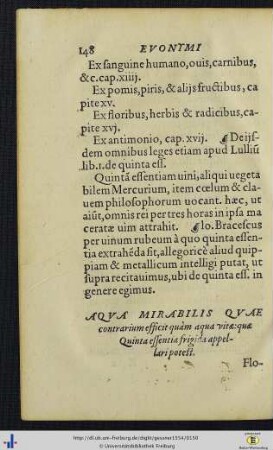 148 EVONYMI
Ex sanguine humano, ouis, carnibus,
&c. cap. xiiij.
Ex pomis, piris, & alijs fructibus, ca
pite xv.
Ex floribus, herbis & radicibus, ca-
pite xvj.
Ex antimonio, cap. xvij. ¶ De ijs-
dem omnibus leges etiam apud Lulliũ
lib. 1. de quinta ess.
Quintã essentiam uini, aliqui uegeta
bilem Mercurium, item cœlum & cla-
uem philosophorum uocant. hæc, ut
aiũt, omnis rei per tres horas in ipsa ma
ceratæ uim attrahit. ¶ Io. Bracescus
per uinum rubeum à quo quinta essen-
tia extrahẽda sit, allegoricè aliud quip-
piam & metallicum intelligi putat, ut
supra recitauimus, ubi de quinta ess. in
genere egimus.
AQVA MIRABILIS QVAE
contrarium efficit quàm aqua vitæ: quæ
Quinta essentia frigida appel-
lari potest.
Flo-
http://dl.ub.uni-freiburg.de/diglit/gessner1554/0150
© Universitätsbibliothek Freiburg